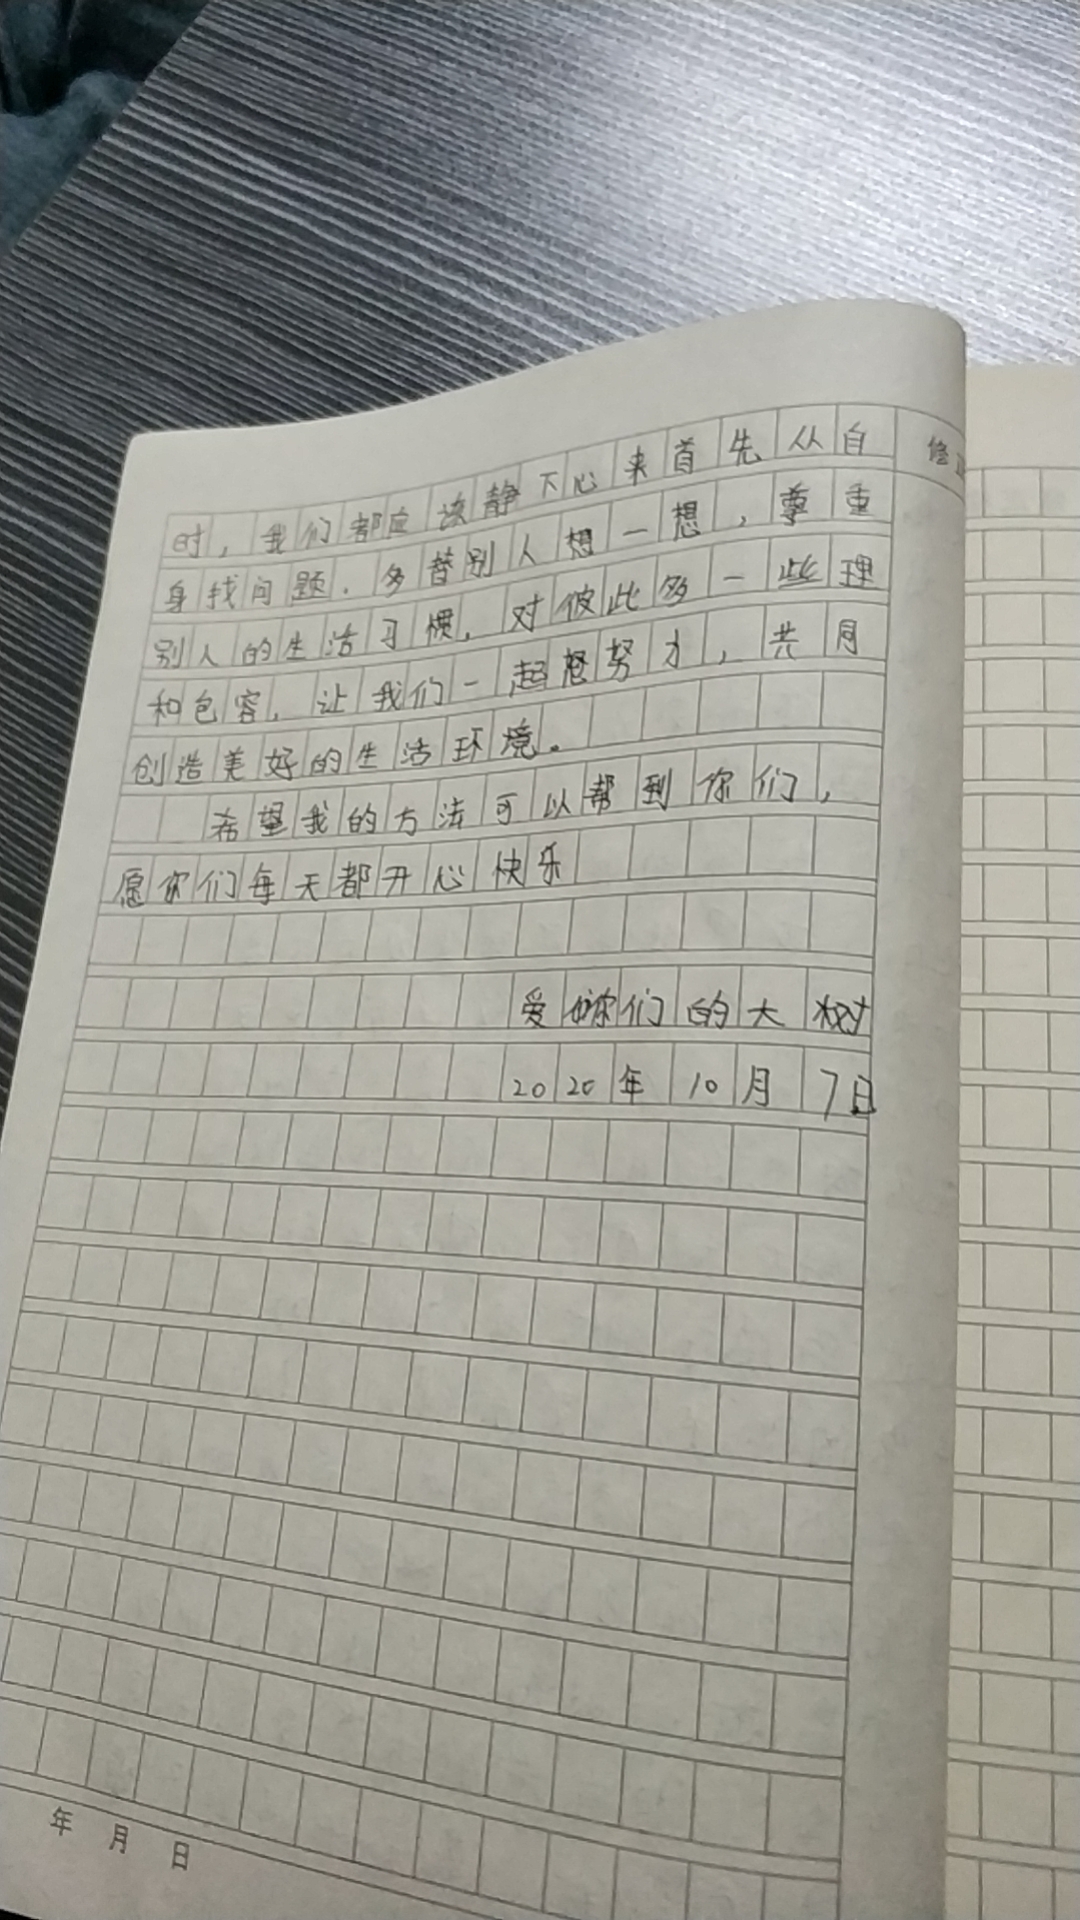 时，我们都应该静下心来首先从自
身找问题．多替别人想一想，尊重
别人的生活习惯，对彼此多一些理
和包容，让我们一起努力，共同
创造美好的生活环境。
希望我的方法可以帮到你们，
愿你们每天都开心快乐
爱你们的大树
2020年10月7日
修
年 月 日